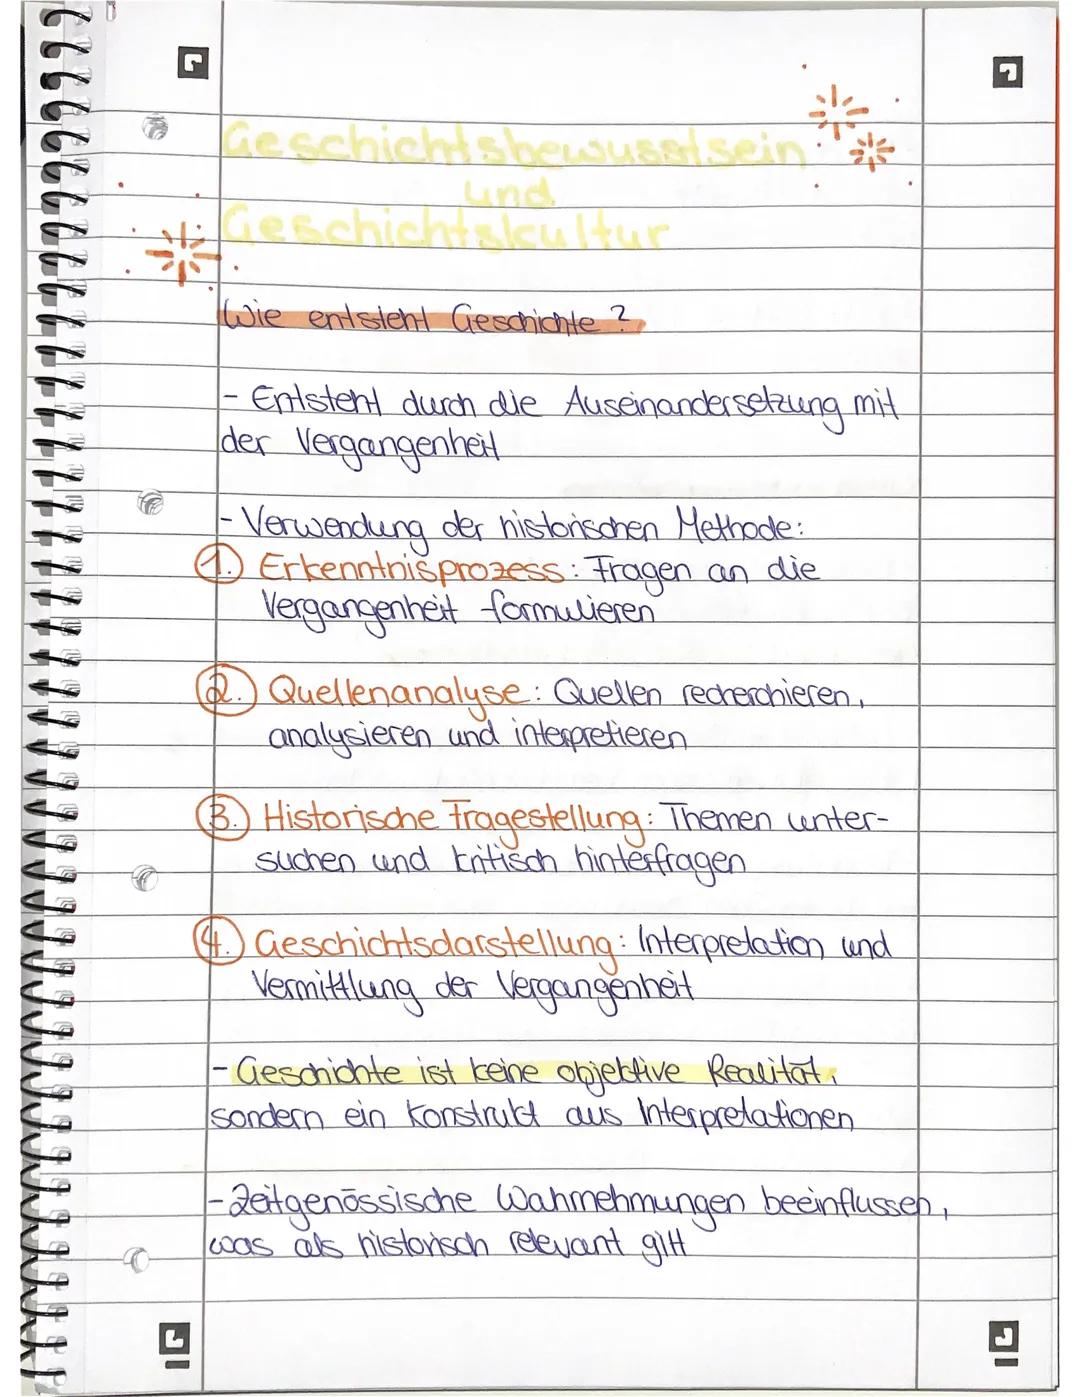 Geschichtsbewusstsein
und
Geschichtskultur
Wie entsteht Geschichte?
- Entsteht durch die Auseinandersetzung mit
der Vergangenheit
- Verwendung der historischen Methode:
1. Erkenntnisprozess: Fragen an die
Vergangenheit formulieren
2. Quellenanalyse: Quellen recherchieren,
analysieren und interpretieren
3. Historische Fragestellung: Themen unter-
suchen und kritisch hinterfragen
4. Geschichtsdarstellung: Interpretation und
Vermittlung der Vergangenheit
- Geschichte ist keine objektive Realität,
sondern ein Konstrukt aus Interpretationen
- Zeitgenössische Wahrnehmungen beeinflussen,
was als historisch relevant gilt